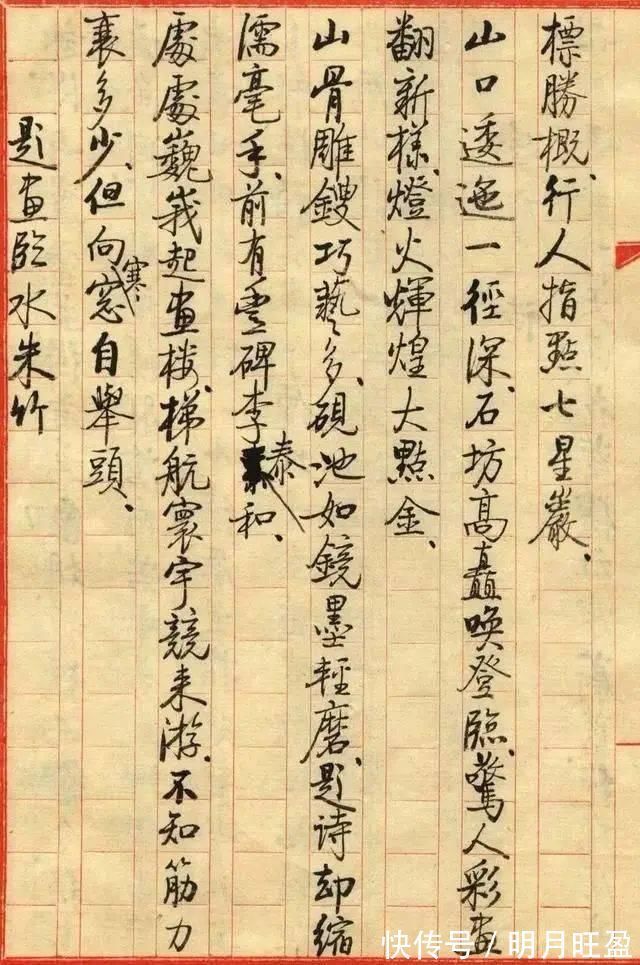 標勝概、行人指點七星巖、
山口逶迤一徑深、石坊高矗喚登臨、驚人彩畫
翻新樣、燈火輝煌大點金、
山骨雕鎪巧藝多、硯池如鏡墨輕磨、題诗却縮
濡毫手、前有豊碑李泰和、
處處巍峩起畫楼、梯航寰宇競来游、不知筋力
衰多少、但向寒窓自舉頭、
題画臨水朱竹
快传号/明月旺盈